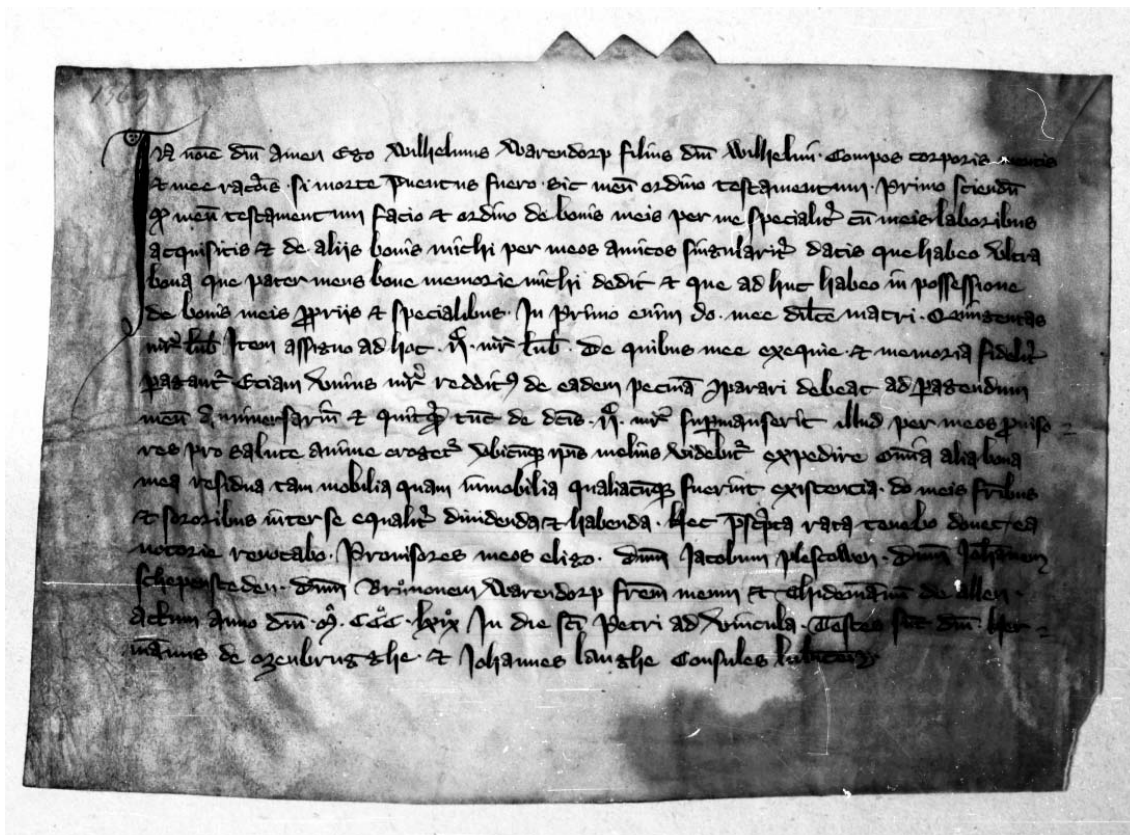 1369
In noīe dnī Amen Ego Wilhelmus Warendorp filius dnī Wilhelmi · Compos corporis mentis
et mee racōis · si morte p̄uentus fuero · sic meū ordino testamentum · Primo sciendū
qꝫ meū testamentum facio et ordino de bonis meis per me specialit᷑ cū meis laboribus
acquisitis et de aliis bonis michi per meos amicos singularit᷑ datis que habeo vltra
bona que pater meus bone memorie michi dedit et que ad huc habeo in possessione
de bonis meis ꝓpriis et specialibus · In primo enim do · mee dilc̄e matri ·
mr̄ lub̄ Item assigno ad hoc · mr̄ lub̄ · De quibus mee exequie · et memoria fidelit᷑
ꝑagant᷑ Eciam vnius mr̄ reddit᷒ de eadem pecūa ꝯparari debeat ad ꝑagendum
meū āniuersariū et quitq̄d tūc de dc̄is · mr̄ suꝑmanserit illud per meos ꝓuiso =
res pro salute anime eroget᷑ vbicūqꝫ ip̄is melius videbit᷑ expedire Om̄ia alia bona
mea residua tam mobilia quam īmobilia qualiacūqꝫ fuerint existencia · do meis fr̄ibus
et sororibus inter se equalit᷑ diuidenda et habenda · Hec p̄sc̄pta rata tenebo donec ea
notorie reuocabo · Prouisores meos eligo · dnm̄ Jacobum plescowen · dnm̄ Joh̄anem
schepensteden · dnm̄ Brūnonem Warendorp fr̄em meum et Thidemānū de Allen ·
Actum Anno dnī · Mͦ · CCCͦ · lxixͦ In die sc̄i Petri ad vincula · Testes sūt dnī · Her =
mānus de ozenbrugghe · et Johannes langhe Consules